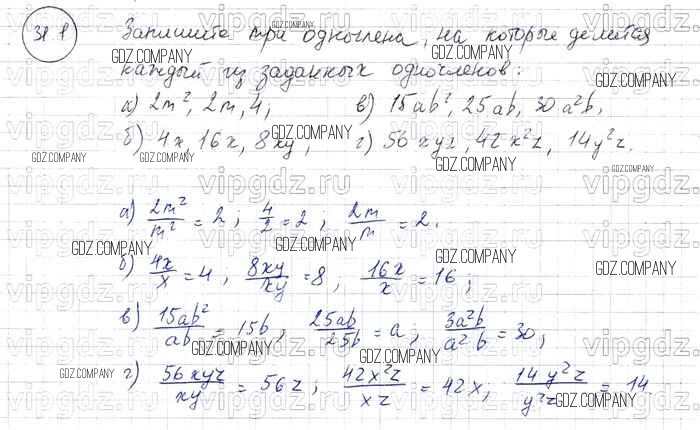 31.1 Запишите три одночлена, на которые делится
каждый из заданных одночленов:
а) 2m², 2m, 4; в) 15ab², 25ab, 30a²b,
б) 4x, 16x, 8xy, г) 56xyz, 42x²z, 14y²z.
а) 2m²/m² = 2; 4/2 = 2; 2m/m = 2.
б) 4x/x = 4, 8xy/xy = 8, 16x/x = 16;
в) 15ab²/ab = 15b; 25ab/25b = a; 3a²b/a²b = 30;
г) 56xyz/xy = 56z; 42x²z/xz = 42x, 14y²z/y²z = 14
GDZ.COMPANY
vipgdz.ru